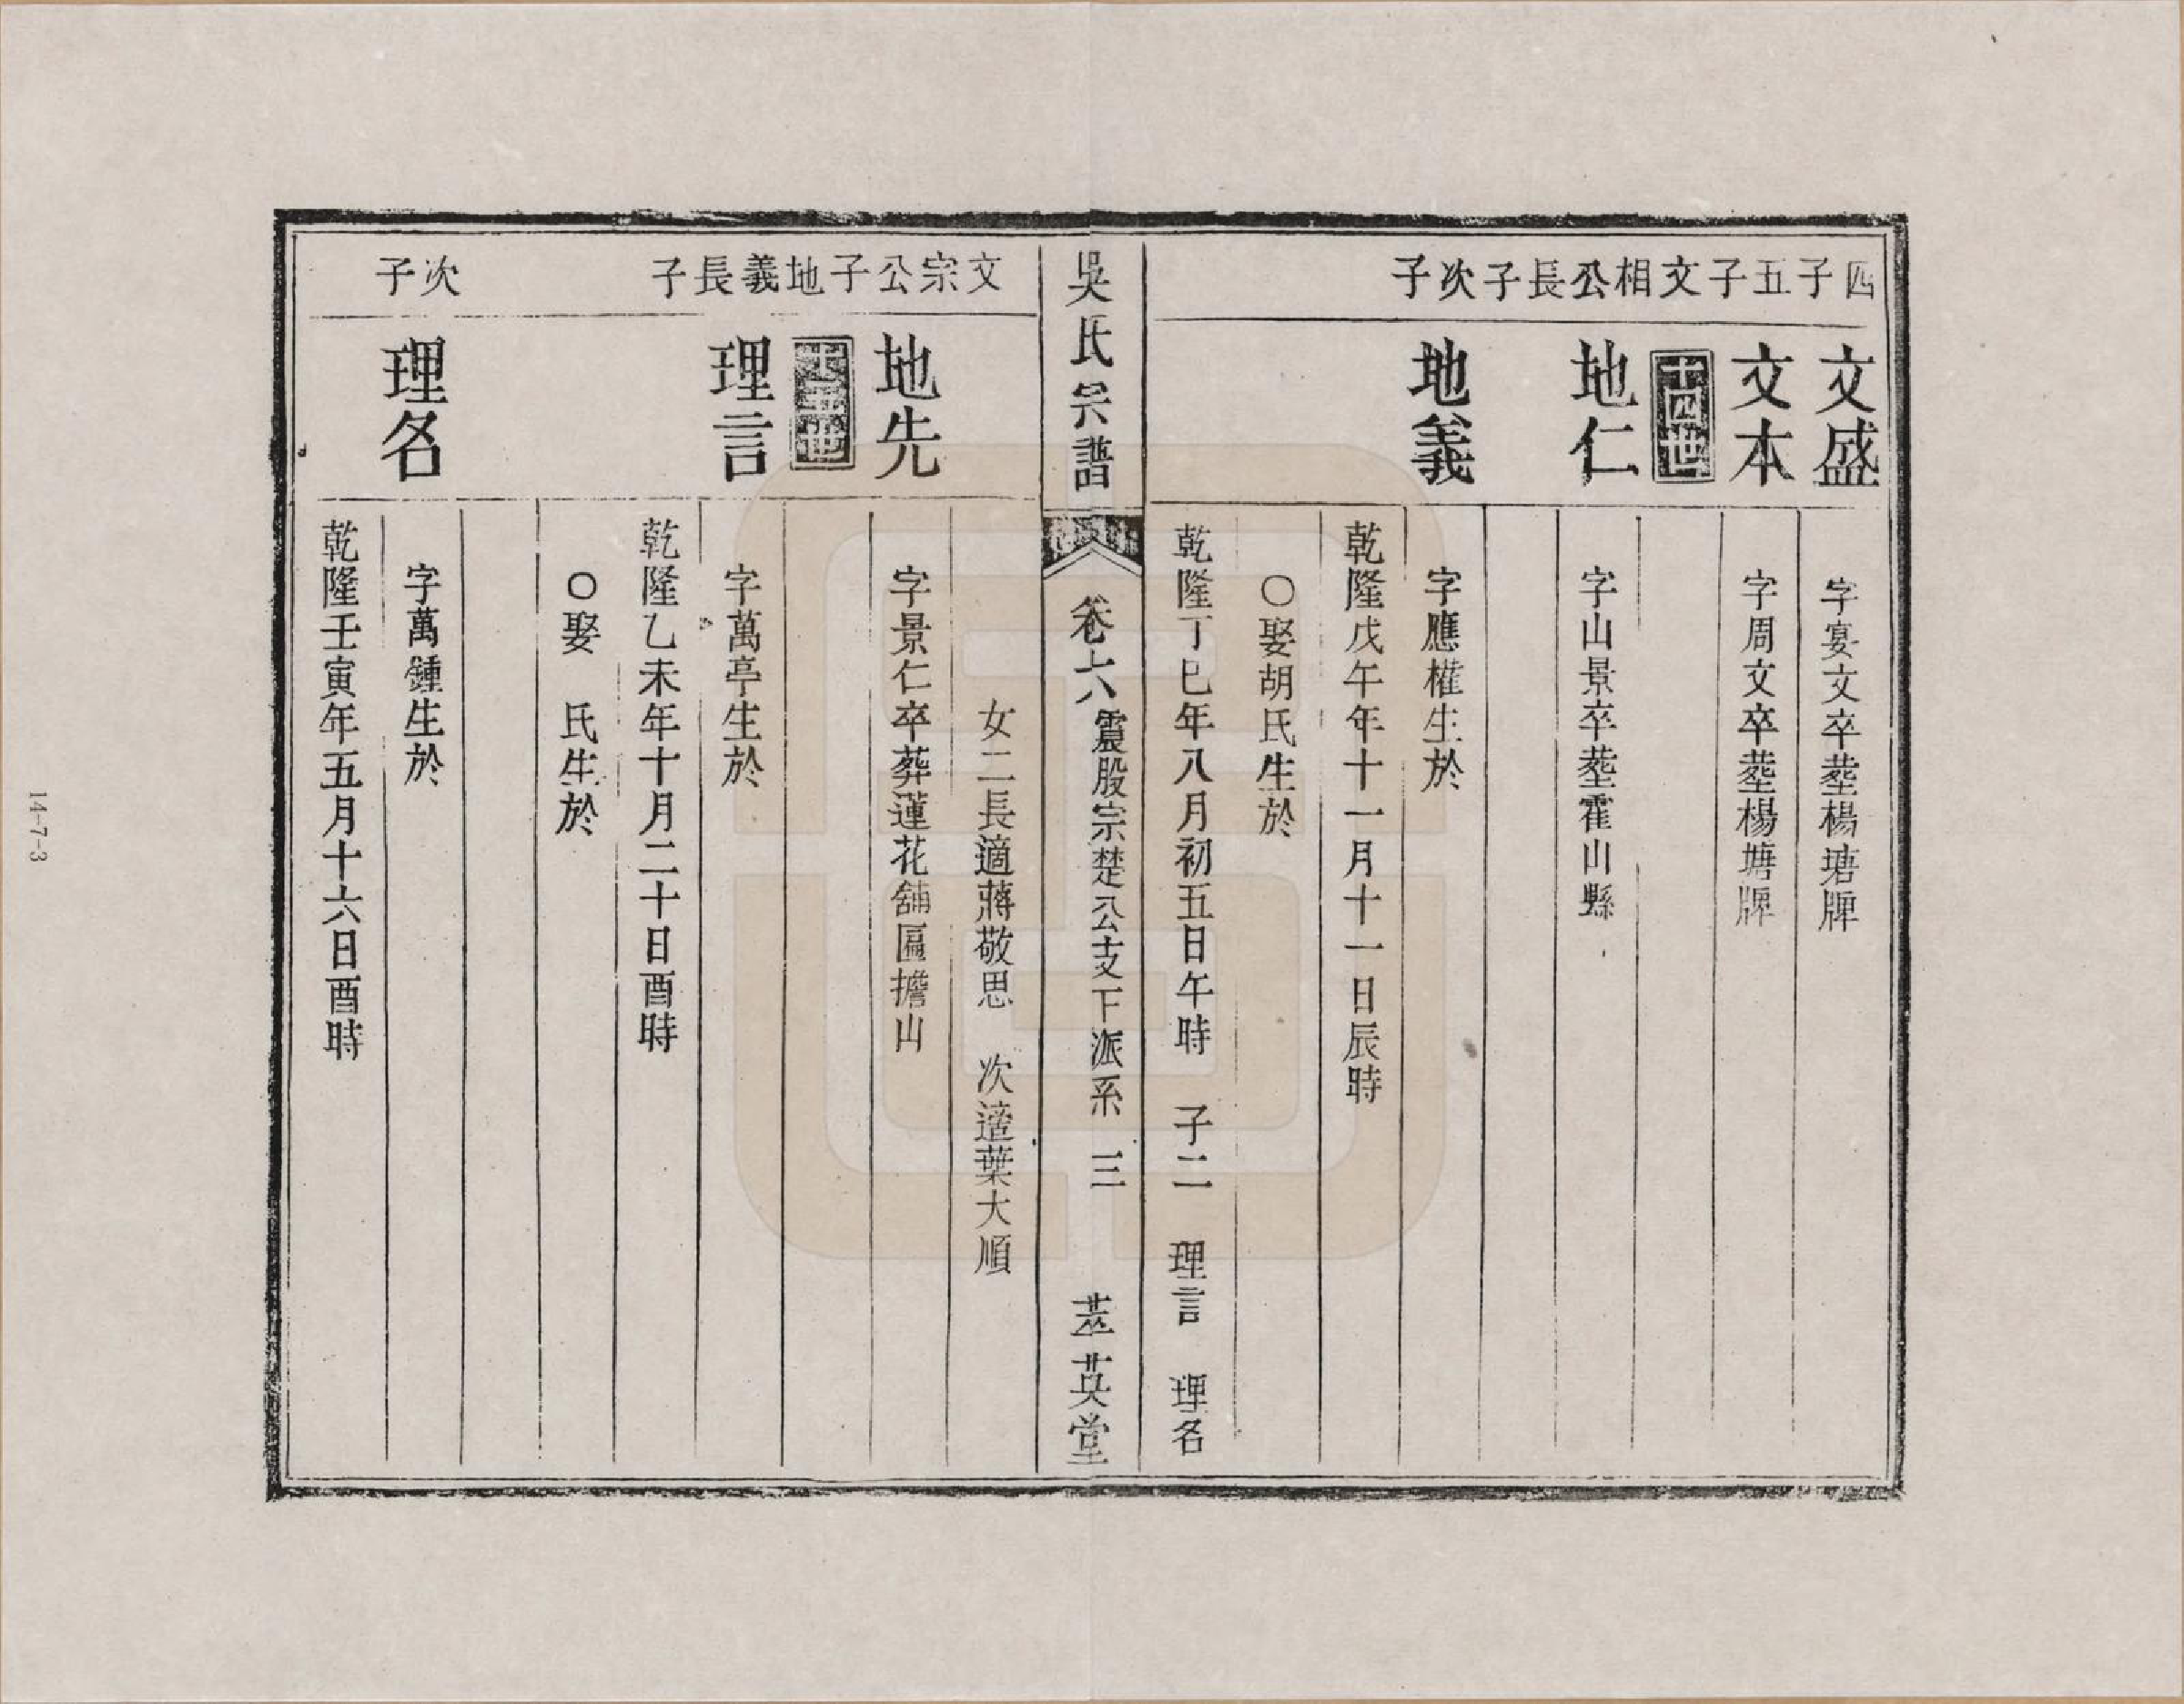 四子五子文相公長子次子
文盛
字宴文卒塟楊塘牌
文本
字周文卒塟楊塘牌
十四世
地仁
字山景卒塟霍山縣
地義
字應權生於
乾隆戊午年十一月十一日辰時
○娶胡氏生於
乾隆丁巳年八月初五日午時 子二 理言 理名
吳氏宗譜
卷六 震股宗楚公支下派系 三
英堂
文宗公子地義長子
次子
女二長適蔣敬思 次適葉大順
地先
字景仁卒葬蓮花舖匾擔山
十五世
理言
字萬亭生於
乾隆乙未年十月二十日酉時
○娶 氏生於
理名
字萬鍾生於
乾隆壬寅年五月十六日酉時
14-7-3